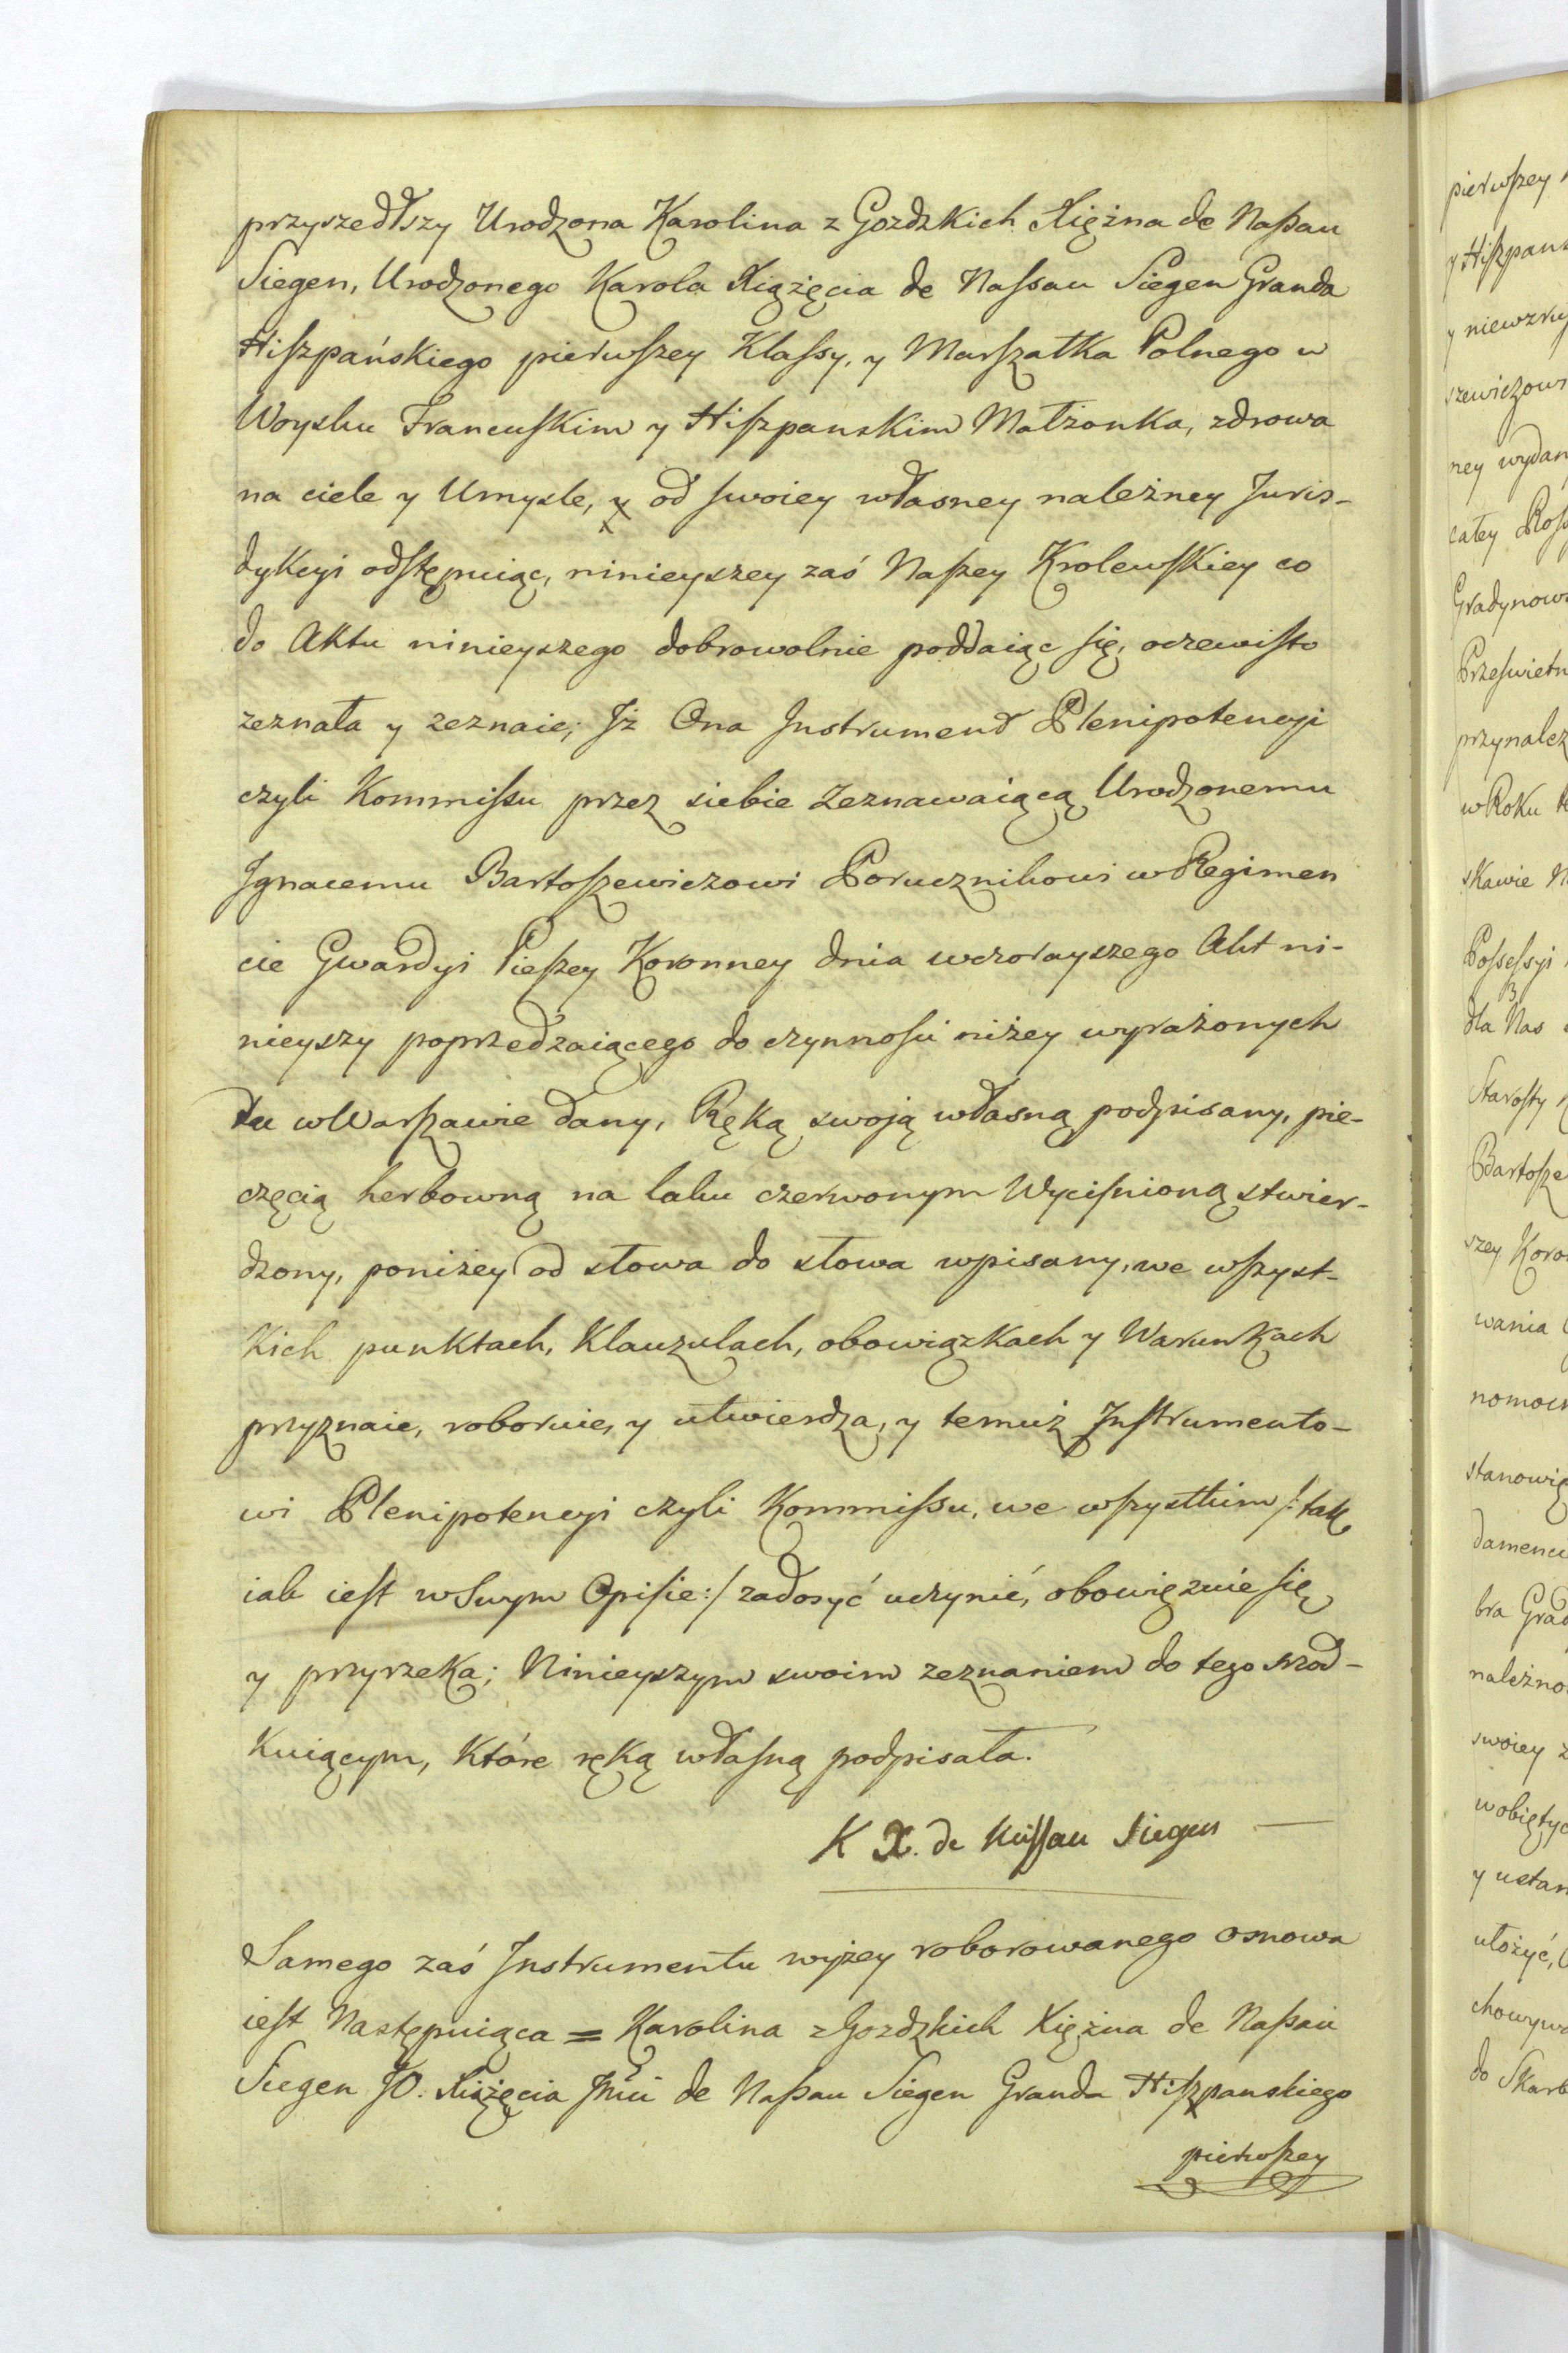 przyszedłszy Urodzona Karolina z Gozdzkich Xiężna de Naßau
Siegen, Urodzonego Karola Xiążęcia de Nassau Siegen Granda
Hiszpańskiego pierwszey Klassy, y Marszałka Polnego w
Woysku Francuskim y Hiszpanskim Małżonka, zdrowa
na ciele y Umysle, y od swoiey własney należney Juris-
dykcyi odstępuiąc, ninieyszey zaś Naszey Krolewskiey co
do Aktu ninieyszego dobrowolnie poddaiąc się, oczewisto
zeznała y zeznaie; Jż Ona Jnstrument Plenipotencyi
czyli Kommissu przez siebie Zeznawaiącą Urodzonemu
Jgnacemu Bartoszewiczowi Porucznikowi w Regimen
cie Gwardyi Pieszey Koronney dnia wczorayszego Akt ni-
nieyszy poprzedzaiącego do czynnosci niżey wyrażonych
tu w Warszawie dany, Ręką swoją własną podpisany, pie-
częcią herbowną na laku czerwonym Wycisnioną stwier-
dzony, poniżey od słowa do słowa wpisany, we wszyst-
kich punktach, Klauzulach, obowiązkach y Warunkach
przyznaie, roboruie, y utwierdza, y temuż Jnstrumento-
wi Plenipotencyi czyli Kommissu, we wszystkim /: tak
iak iest w Swym Opisie :/ zadosyć uczynić, obowięzuie się
y przyrzeka; Ninieyszym swoim zeznaniem do tego srzod-
kuiącym, Które ręką własną podpisała.
K X. de Nassau Siegen
Samego zaś Jnstrumentu wyżey roborowanego osnowa
iest Następuiąca = Karolina z Gozdzkich Xiężna de Naßau
Siegen JO. Xiążęcia Jmci de Naßau Siegen Granda Hiszpanskiego
pierwszey
pierwszey
y Hiszpans
y niewzru
szewiczow
ney wydan
całey Ross
Gradynow
Przeswietn
przynależ
w Roku
skawie N
Possessyi
dla Nas
Starosty
Bartosze
szey Koro
wania
nomocn
stanowię
damencu
bra Grad
należno
swoiey z
w obiętyc
y ustan
ułożyć,
chowywa
do Skarb